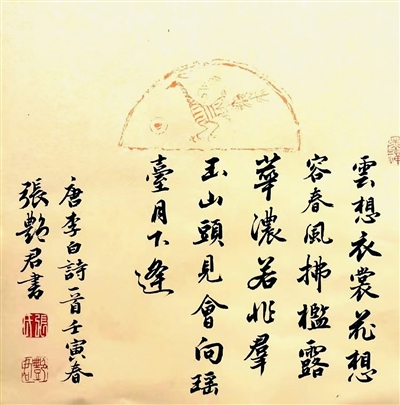 雲想衣裳花想
容春風拂檻露
華濃若非羣
玉山頭見會向瑶
臺月下逢
唐李白詩一首壬寅春
張艷君書